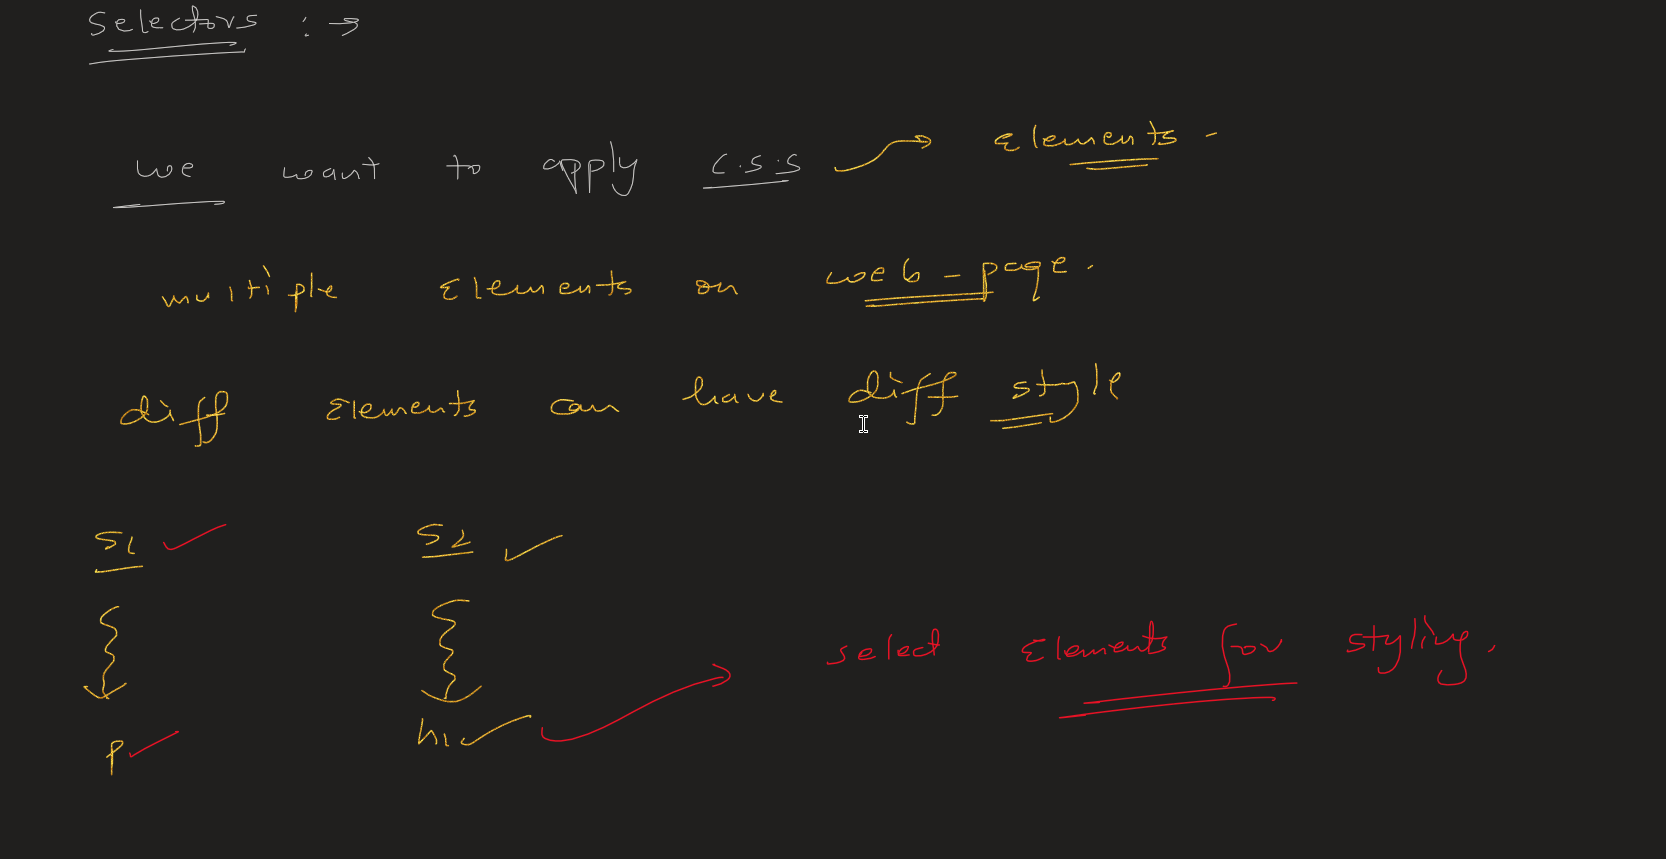 Selectors : →
we want to apply C.S.S → Elements -
multiple Elements on web-page.
diff Elements can have diff style
S1 S2
select Elements for styling.
p h1